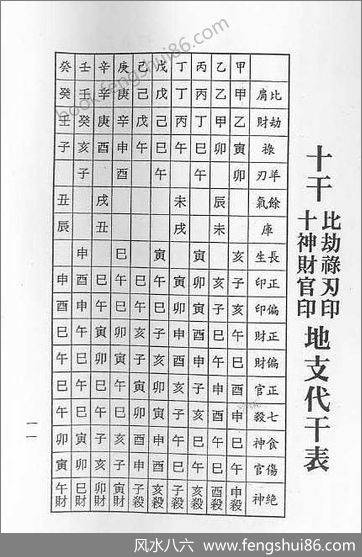 十干
比劫祿刃印
十神財官印
地支代干表
比肩 劫財 祿 羊刃 餘氣 庫 長生 正印 偏印 正財 偏財 正官 七殺 食神 傷官 絕神
甲 甲 乙 寅 卯 亥 子 亥 午 巳 酉 申 巳 午 申殺
乙 乙 甲 卯 辰 未 亥 子 巳 午 申 酉 午 巳 酉殺
丙 丙 丁 巳 午 寅 卯 寅 酉 申 子 亥 巳 午 亥殺
丁 丁 丙 午 未 戌 寅 卯 申 酉 亥 子 午 巳 子殺
戊 戊 己 巳 午 寅 午 巳 子 亥 卯 寅 申 酉 亥殺
己 己 戊 午 巳 午 亥 子 寅 卯 酉 申 子殺
庚 庚 辛 申 酉 巳 午 巳 卯 寅 午 巳 亥 子 寅財
辛 辛 庚 酉 戌 丑 巳 午 寅 卯 巳 午 子 亥 卯財
壬 壬 癸 亥 子 申 酉 申 午 巳 午 巳 寅 卯 巳財
癸 癸 壬 子 丑 辰 申 酉 巳 午 巳 午 卯 寅 午財
一一
book.fengshui86.com
风水八六 www.fengshui86.com